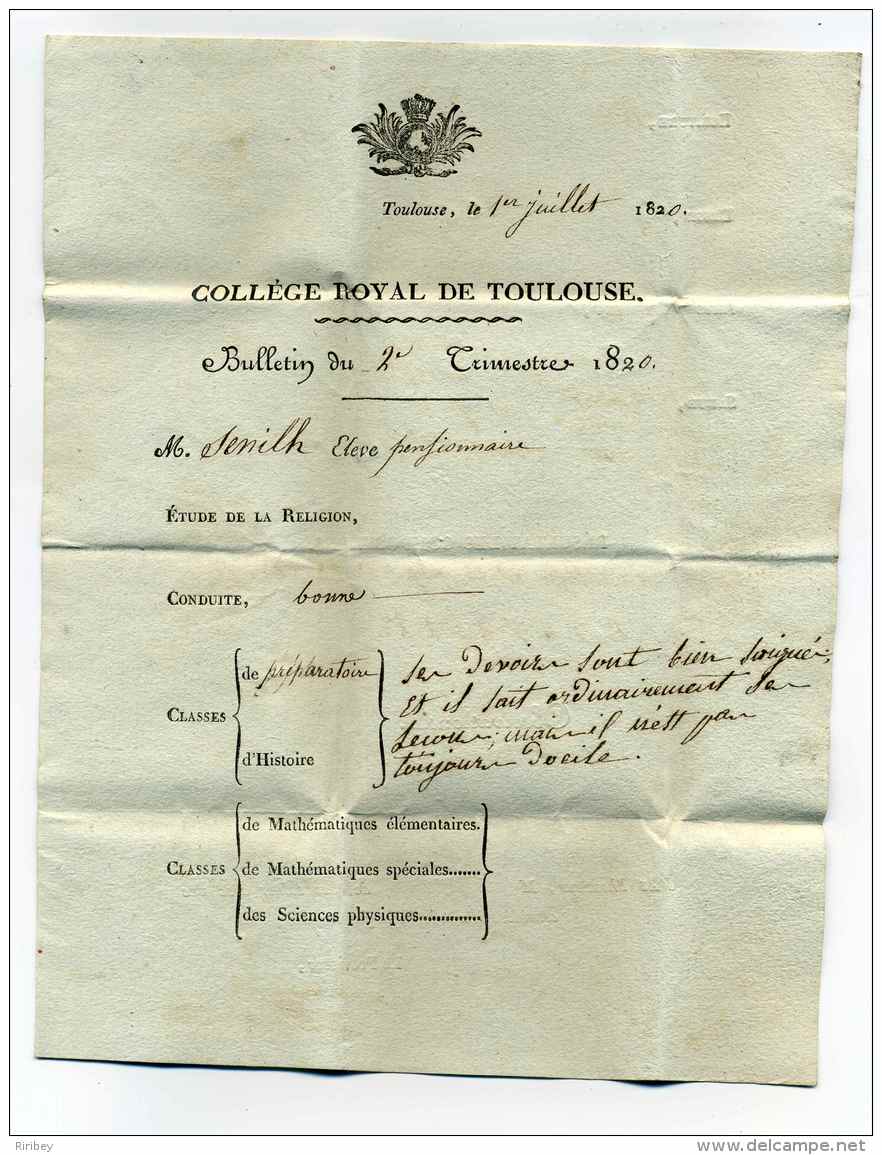 Toulouse, le 1er juillet 1820.
COLLÉGE ROYAL DE TOULOUSE.
Bulletin du 2e Trimestre 1820.
M. Senilh Eleve pensionnaire
ÉTUDE DE LA RELIGION,
CONDUITE, bonne
de préparatoire
CLASSES
d'Histoire
ses Devoirs sont bien soignés,
et il sait ordinairement ses
leçons; mais il n'est pas
toujours Docile.
de Mathématiques élémentaires.
CLASSES de Mathématiques spéciales.......
des Sciences physiques..............
Riribey
www.delcampe.net